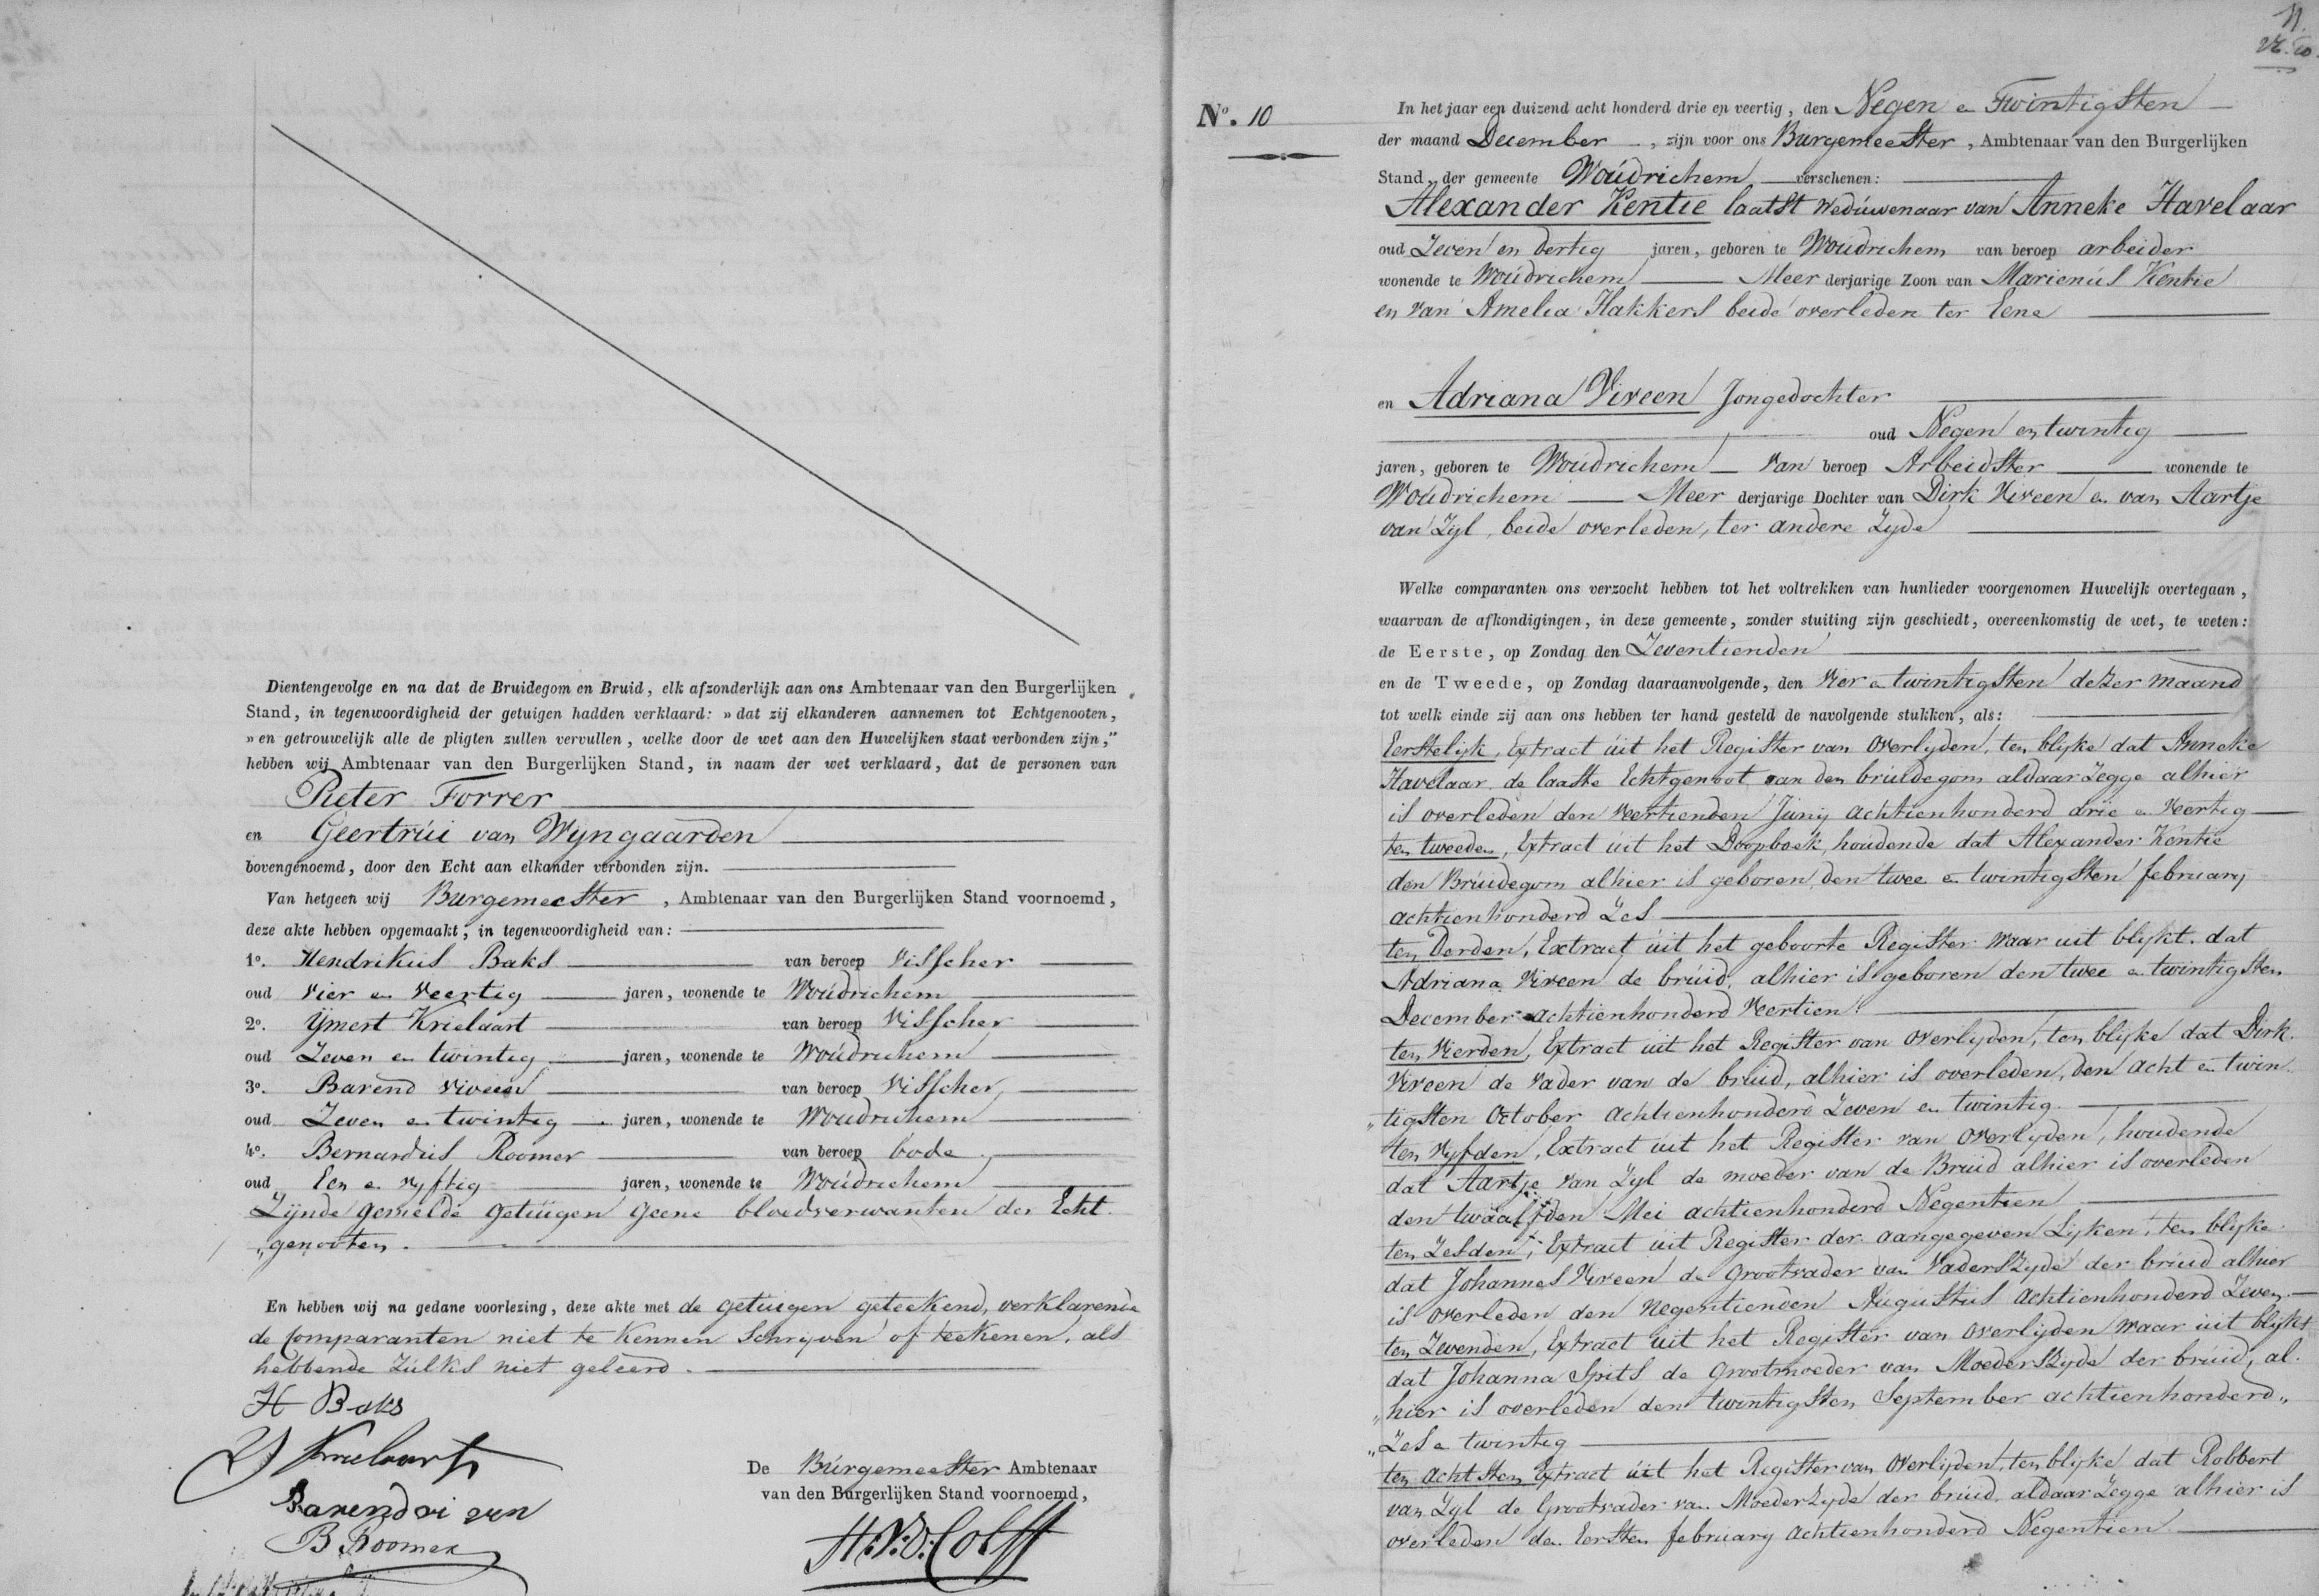 Dientengevolge en na dat de Bruidegom en Bruid, elk afzonderlijk aan ons Ambtenaar van den Burgerlijken
Stand, in tegenwoordigheid der getuigen hadden verklaard: » dat zij elkanderen aannemen tot Echtgenooten,
» en getrouwelijk alle de pligten zullen vervullen, welke door de wet aan den Huwelijken staat verbonden zijn,"
hebben wij Ambtenaar van den Burgerlijken Stand, in naam der wet verklaard, dat de personen van
Pieter Forrer
en Geertrúi van Wijngaarden
bovengenoemd, door den Echt aan elkander verbonden zijn.
Van hetgeen wij Burgemeester, Ambtenaar van den Burgerlijken Stand voornoemd,
deze akte hebben opgemaakt, in tegenwoordigheid van:
1o. Hendrikús Baks van beroep Visscher
oud Vier en Veertig jaren, wonende te Woúdrichem
2o. Ijmert Krielaart van beroep Visscher
oud Zeven en twintig jaren, wonende te Woúdrichem
3o. Barend Viveen van beroep Visscher,
oud Zeven en twintig jaren, wonende te Woudrichem
4o. Bernardús Roomer van beroep bode
oud Een en vyftig jaren, wonende te Woúdrichem
Zijnde gemelde getúigen geene bloedverwanten der Echt
„genooten.
En hebben wij na gedane voorlezing, deze akte met de getuigen geteekend, verklarende
de Comparanten niet te kennen Schrijven of teekenen, als
hebbende zúlks niet geleerd.
H Baks
Y Krielaart
Barend vi veen
B Roomer
De Búrgemeester Ambtenaar
van den Burgerlijken Stand voornoemd,
H.V.D. Colff
11.
No. 10
In het jaar een duizend acht honderd drie en veertig, den Negen en Twintigsten
der maand December, zijn voor ons Burgemeester, Ambtenaar van den Burgerlijken
Stand, der gemeente Woúdrichem verschenen:
Alexander Kentie laatst Wedúwenaar van Anneke Havelaar
oud Zeven en dertig jaren, geboren te Woúdrichem van beroep arbeider
wonende te Woúdrichem Meer derjarige Zoon van Marienús Kentie
en van Amelia Hakkers beide overleden ter Eene
en Adriana Viveen Jongedochter
oud Negen en twintig
jaren, geboren te Woúdrichem van beroep Arbeidster wonende te
Woúdrichem Meer derjarige Dochter van Dirk Viveen en van Aartje
van Zyl, beide overleden, ter andere Zyde
Welke comparanten ons verzocht hebben tot het voltrekken van hunlieder voorgenomen Huwelijk overtegaan,
waarvan de afkondigingen, in deze gemeente, zonder stuiting zijn geschiedt, overeenkomstig de wet, te weten:
de Eerste, op Zondag den Zeventienden
en de Tweede, op Zondag daaraanvolgende, den Vier en twintigsten dezer maand
tot welk einde zij aan ons hebben ter hand gesteld de navolgende stukken, als:
Eerstelijk, Extract úit het Register van Overlyden, ten blijke dat Anneke
Havelaar de laatste Echtgenoot van den brúidegom aldaar Zegge alhier
is overleden den Veertienden Junij achtienhonderd drie en Veertig
ten tweeden, Extract úit het Doopboek, hoúdende dat Alexander Kentie
den Brúidegom alhier is geboren, den twee en twintigsten february
achtienhonderd Zes.
ten Derden, Extract úit het geboorte Register waar uit blijkt dat
Adriana Viveen de brúid, alhier is geboren den twee en twintigsten
December achtienhonderd Veertien.
ten Vierden, Extract uit het Register van Overlyden, ten blijke dat Dirk
Viveen de Vader van de brúid, alhier is overleden, den acht en twin
„tigsten October achtienhonderd Zeven en twintig.
ten Vyfden, Extract uit het Register van Overlyden, houdende
dat Aartje van Zyl de moeder van de Brúid alhier is overleden
den twaalfden Mei achtienhonderd Negentien
ten Zesden, Extract uit Register der aangegeven Lijken, ten blijke
dat Johannes Viveen de Grootvader van Vaderszyde der brúid alhier
is overleden den Negentienden Aúgústús achtienhonderd Zeven.
ten Zevenden, Extract uit het Register van Overlijden waar úit blijkt
dat Johanna Spits de Grootmoeder van Moederszyde der brúid, al
„hier is overleden den twintigsten September achtienhonderd„
„Zes en twintig
ten achtsten Extract úit het Register van Overlijden, ten blijke dat Robbert
van Zyl de Grootvader van Moederzyde der brúid, aldaar Zegge alhier is
overleden den Eersten february achtienhonderd Negentien